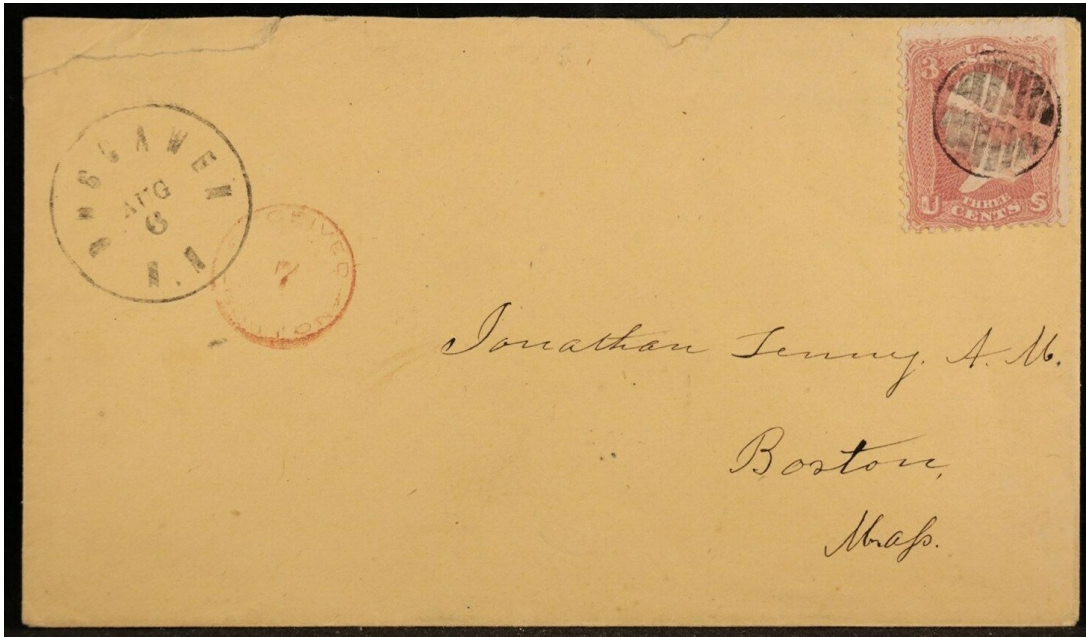 BOSCAWEN
AUG
6
RECEIVED
7
AUG.
3
U.
U THREE S
CENTS
Jonathan Tenney. A. M.
Boston,
Maſs.